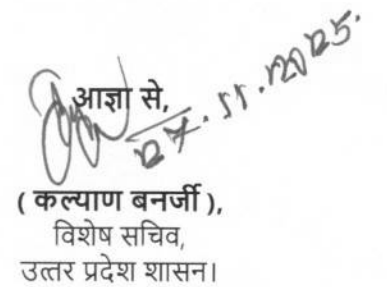 आज्ञा से,
27.11.2025.
( कल्याण बनर्जी ),
विशेष सचिव,
उत्तर प्रदेश शासन।